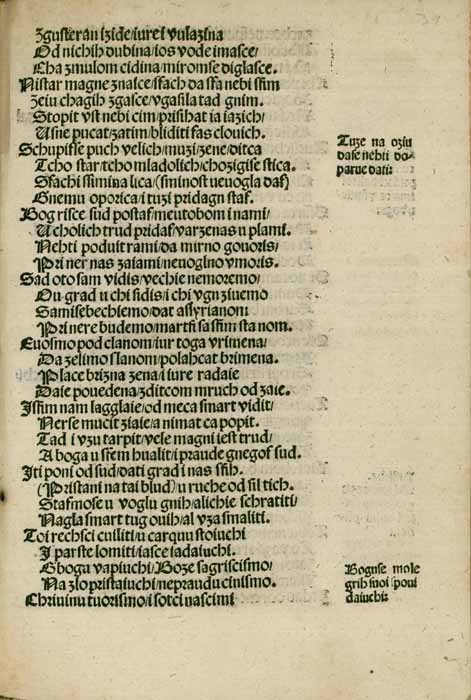 Zgusteran izide/iure i vulazina
Od nichih dubina/ios vode imasce/
Cha zmulom cidina/miromse diglasce.
Nistar magne znasce/sfach da sfa nebi sfim
Zeiu chagih zgasce/vgasila tad gnim.
Stopit vst nebi cim/prisihat ia iazich/
Usne pucat/zatim/bliditi fas clouich.
Schupisse puch velich/muzi/zene/ditca
Tcho star/tcho mladolich/chozigise stica.
Sfachi sfimina lica/(sminost veuogla das)
Gnemu oporica/i tuzi pridagn staf.
Bog risce sud postaf/meutobom i nami/
Ucholich trud pridaf/varzenas u plami.
Nehti poduit rami/da mirno gouoris/
Pri ner nas zaiami/neuoglno vmoris.
Sad oto sam vidis/vechie nemoremo/
Ou grad u chi sidis/i chi vgn ziuemo
Samisebechiemo/dat assyrianom
Pri nere budemo/martfi sa sfim sta nom.
Euosmo pod clanom/iur toga vrimena/
Da zelimo slanom/polahcat brimena.
Place brizna zena/i iure radaie
Daie pouedena/zditcom mruch od zaie.
Isfim nam lagglaie/od meca smart vidit/
Nerse mucit ziaie/a nimat ca popit.
Tad i vzu tarpit/vele magni iest trud/
A boga u sfem hualit/i praude gnegof sud.
Iti poni od sud/dati grad i nas sfih.
(Pristani na tai blud)/u ruche od sil tich.
Stafmose u voglu gnih/alichie schratiti/
Nagla smart tug ouih/al vza smaliti.
Toi rechsci cuiliti/u carquu stoiuchi
I parste lomiti/iasce iadaiuchi.
Gbogu vapiuchi/Boze sagriscismo/
Na zlo pristaiuchi/neprauducinismo.
Chriuinu tuorismo/i sotci nascimi
Tuze na oziu
dase nehti do-
paruc dati:
Boguse mole
grih suoi spoui
daiuchi: